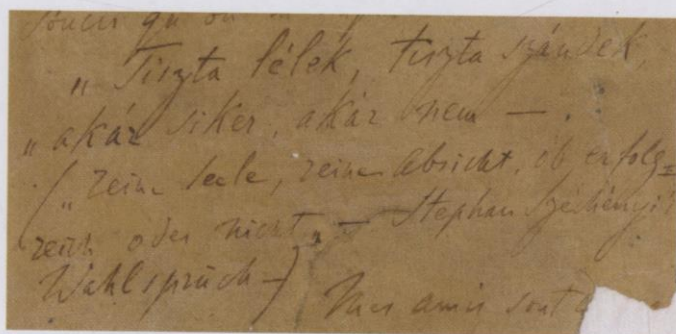 „Tiszta lélek, tiszta szándék,
„akár siker, akár nem — .
(„reine Seele, reine Absicht, ob erfolg=
reich oder nicht„ — Stephan Széchényi's
Wahlspruch —)
Mes amis sont